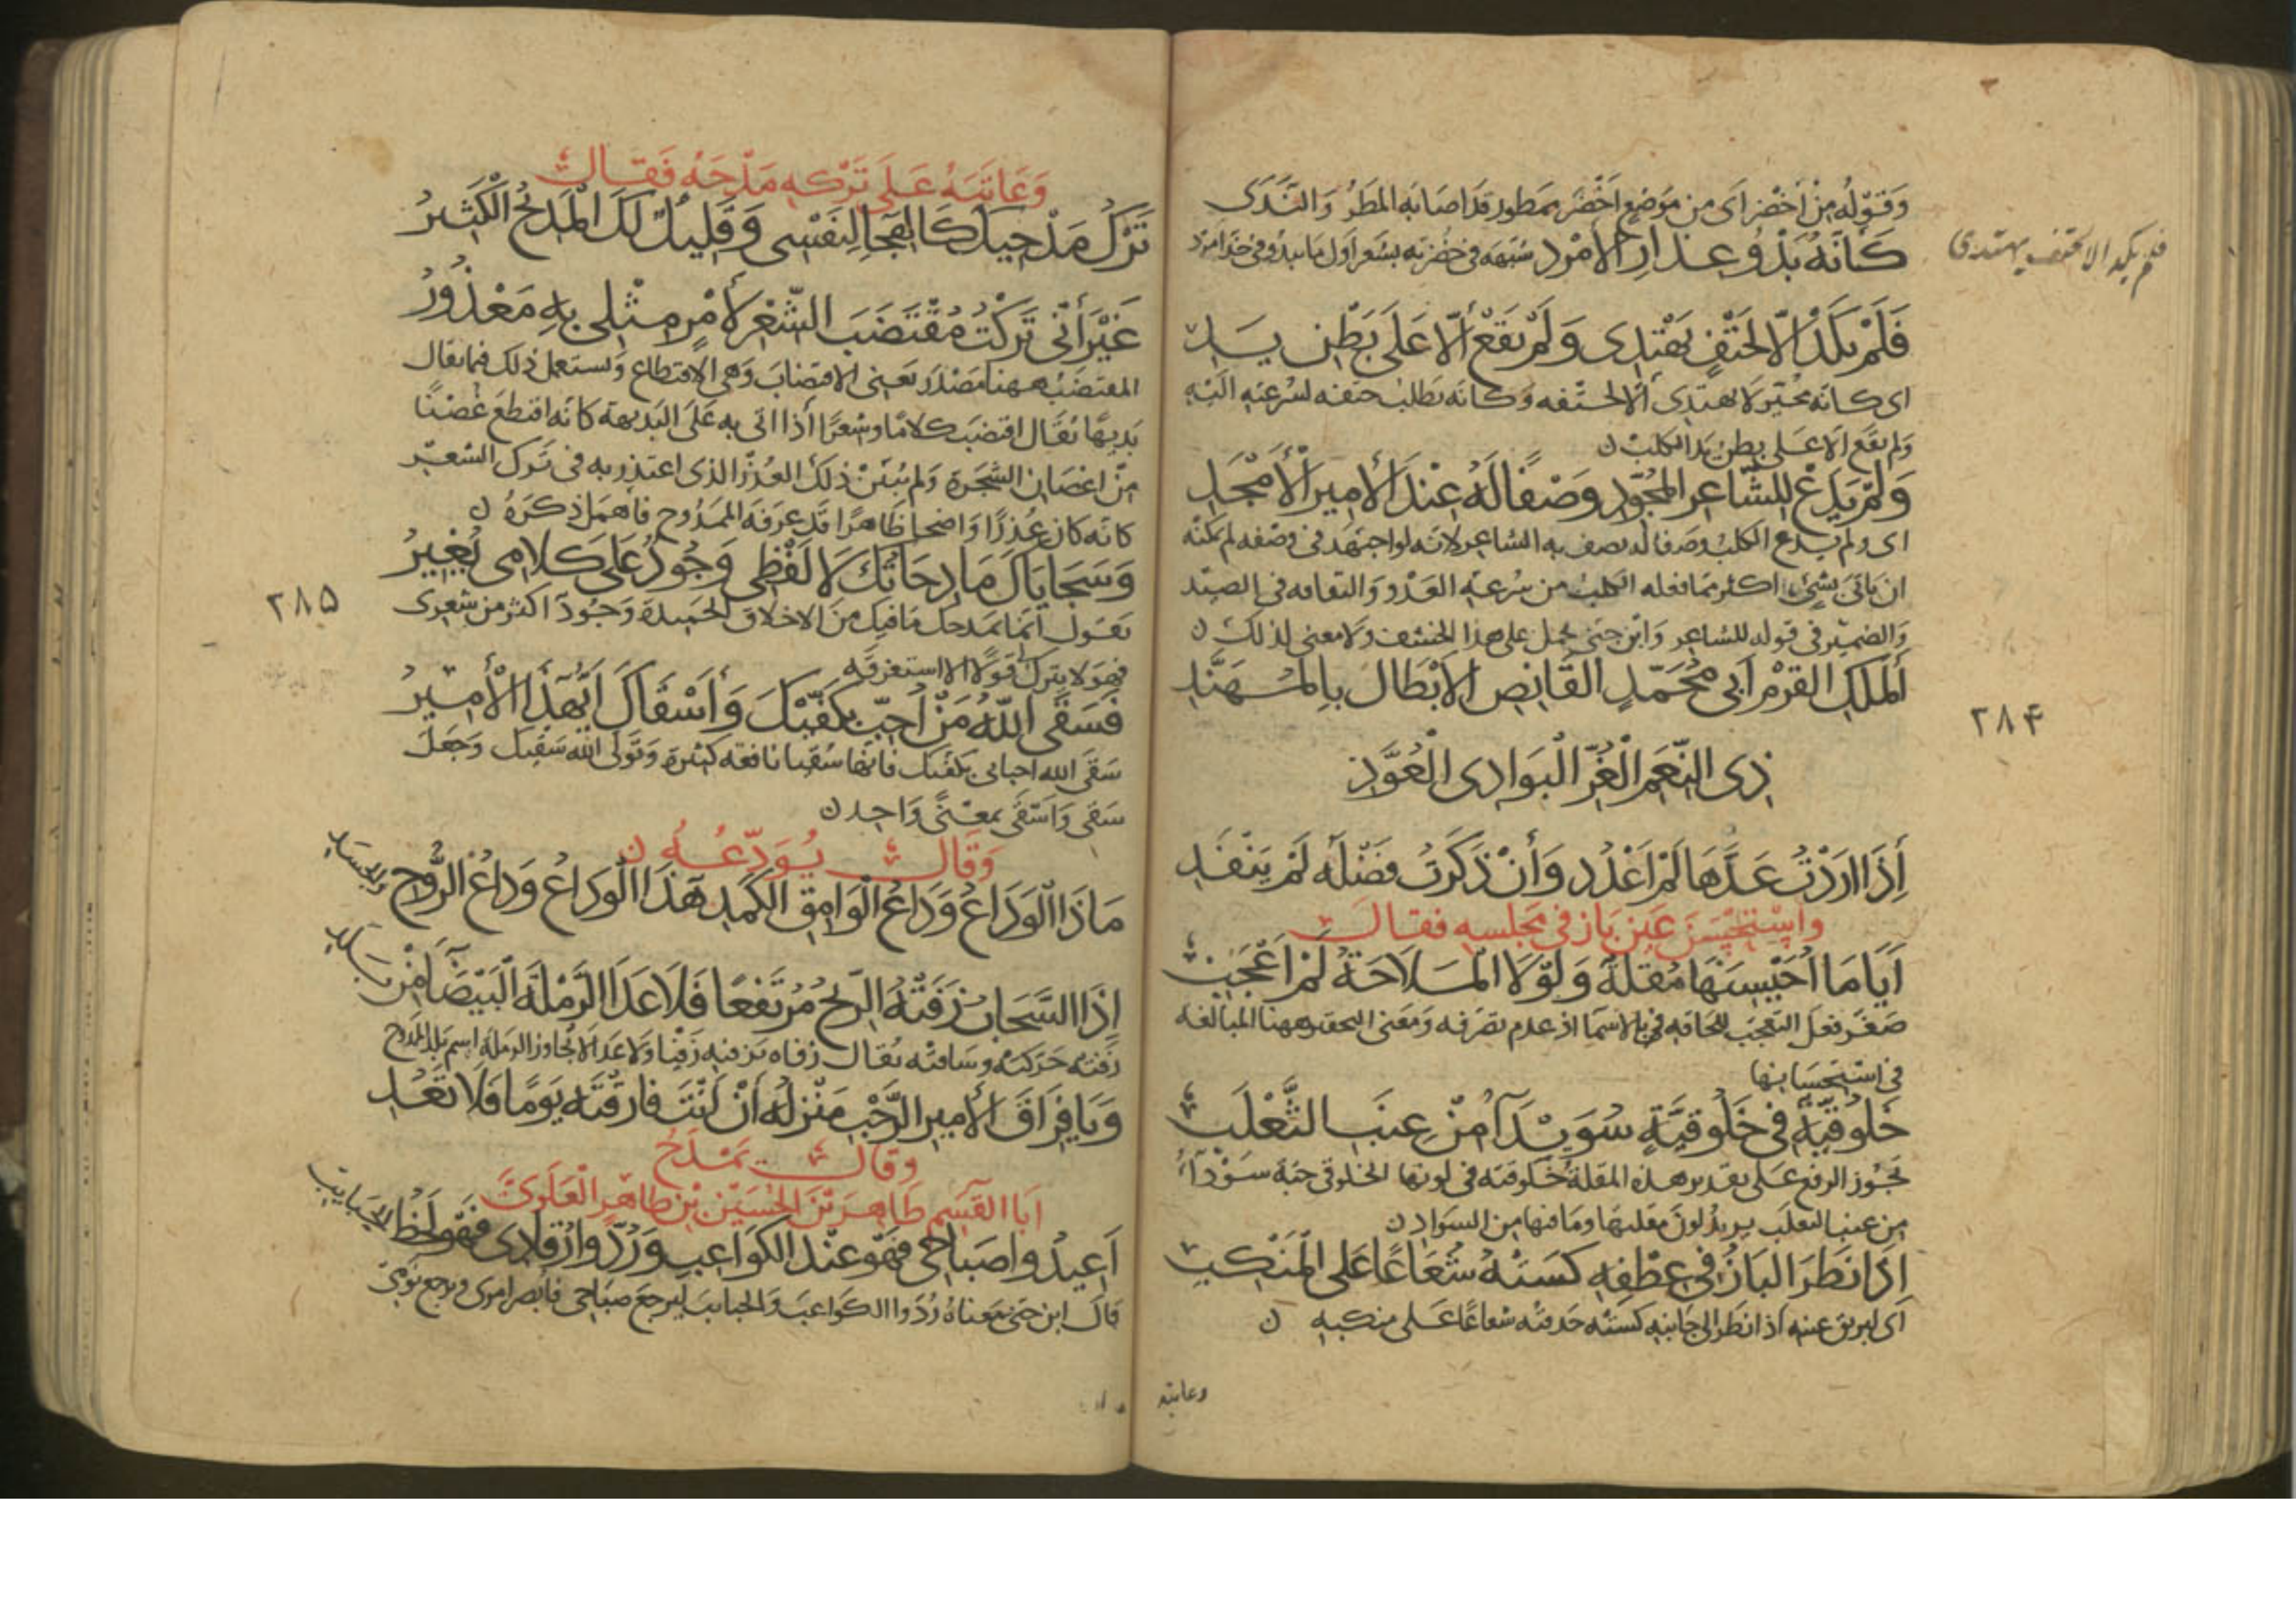 وَقَوْلُه مِنْ أَخْضَر اى من مَوْضِع اخْضَر ممطور قد اصابه المطَرُ وَالنَّدَى
كَأَنَّهُ بَدْوُ عِذَارِ الأَمْرَدِ شبّهه فى خضرته بشعر اول ما يبدو فى خد امرد
فلم يكد الا لحتف يهتدى
فَلَمْ يَكَدْ إلّا لِحَتْفٍ يَهْتَدِى وَلَمْ يَقَعْ أَلّا عَلَى بَطْنِ يَدِ
اى كانه متحير لا يهتدى الا لحتفه وكانه يطلب حتفه لسرعته اليه
ولم يقع الا على بطن يد الكلب ن
وَلَمْ يَدَعْ لِلشَّاعِرِ المُجَوِّدِ وَصْفًا لَهُ عِنْدَ الأَمِيرِ الْأَمْجَدِ
اى ولم يدع الكلب وصفا له يصف به الشاعر لانه لو اجتهد فى وصفه لم يمكنه
ان ياتى بشىء اكثر مما فعله الكلب من سرعة العدو والتقافه فى الصيد
والضمير فى قوله للشاعر وابن جنى حمل على هذا الخشف ولا معنى لذلك ن
أَلْمَلِكِ القَرْمِ أَبِى مُحَمَّدٍ القَانِصِ الأَبْطَالَ بِالمُهَنَّدِ
٢٨٤
ذِى النِّعَمِ الْغُرِّ الْبَوَادِى الْعُوَّدِ
إِذَا ارَدْتُ عَدَّهَا لَمْ اعْدُدِ وَأنْ ذَكَرْتُ فَضْلَهُ لَمْ يَنْفَدِ
واسْتَحْسَنَ عَيْنَ بَازٍ فى مَجْلِسِهِ فقالَ
أَيَا مَا أُحَيْسِنَهَا مُقْلَةً وَلَوْلَا الْمَلَاحَةُ لَمْ أَعْجَبِ
صغّر فعل التعجب لالحاقه بالاسما اذ عدم تصرفه ومعنى التحقير ههنا المبالغه
فى استحسانها
خَلُوقِيَّةً فِى خَلُوقِيِّهَا سُوَيْدَآءُ مِنْ عِنَبِ الثَّعْلَبِ
يجوز الرفع على تقدير هذه المقلة خلوقية فى لونها الخلوقى حبة سودآء
من عنب الثعلب يريد لون مقلتها وما فيها من السواد ن
اذَا نَظَرَ البَازُ فى عِطْفِهِ كَسَتْهُ شُعَاعًا عَلَى الْمَنْكِبِ
اى لبريق عينه اذا نظر الى جانبه كسته حدقته شعاعًا على منكبه ن
وعاتبه
وَعَاتَبَهُ عَلَى تَرْكِهِ مَدْحَهُ فَقَالَ
تَرْكُ مَدْحِيكَ كَالهِجَا لِنَفْسِى وَقَلِيلٌ لَكَ الْمَدِيحُ الْكَثِيرُ
غَيْرَ أَنِّى تَرَكْتُ مُقْتَضَبَ الشِّعْرِ لأَمْرٍ مِثْلِى بِهِ مَعْذُورُ
المقتضب ههنا مصدر بمعنى الاقتضاب وهى الاقتطاع ويستعمل ذلك فيما يقال
بديهًا يقال اقتضب كلامًا وشعرًا أذا اتى به على البديهة كانه اقتطع غصنًا
من اغصان الشجرة ولم يبين ذلك العذر الذى اعتذر به فى ترك الشعر
كانه كان عذرًا واضحا ظاهرًا قد عرفه الممدوح فاهمل ذكره ن
وَسَجَايَاكَ مَادِحَاتُكَ لَا لَفْظِى وَجُودٌ عَلَى كَلَامِى يُغِيرُ
٢٨۵
يقول انما يمدحك ما فيك من الاخلاق الحميدة وجودٌ اكثر من شعرى
فهو لا يترك قولًا الا استغرقه
فَسَقَى اللهُ مَنْ أُحِبّ بِكَفَّيْكَ وَأَسْقَاكَ أيُّهَذَا الْأَمِيرُ
سقى الله احبابى بكفيك فانها سقيا نافعة كثيرة وتولى الله سقيك وجعل
سقى وأسقى بمعنًى واحد ن
وَقَالَ يُوَدِّعُهُ ن
مَاذَا الْوَدَاعُ وَدَاعُ الْوَامِقِ الكَمِدِ هَذَا الْوَدَاعُ وَدَاعُ الرُّوحِ وَالجَسَدِ
إِذَا السَّحَابُ زَفَتْهُ الرّيحُ مُرْتَفِعًا فَلَا عَدَا الرَّمْلَةَ الْبَيْضَآءَ مِنْ بَلَدِ
زفته حركته وساقته يقال زفاه يزفيه زفيًا ولا عدا لا تجاوز الرملة اسم بلد الممدوح
وَيَا فِرَاقَ الأَمِيرِ الرَّحْبِ مَنْزِلُهُ أنْ أَنْتَ فَارَقْتَهُ يَوْمًا فَلَا تَعُدِ
وقال يَمْدَحُ
ابَا الْقَسِم طَاهِرَ بْنَ الْحُسَيْن بْنِ طَاهِرٍ الْعَلَوِىَّ
أَعِيدُوا صَبَاحِى فَهْوَ عِنْدَ الكَوَاعِبِ وَرُدّوا رُقَادِى فَهْوَ لَحْظُ الحَبَايِبِ
قال ابن جنى معناه ردّوا الكواعب والحبايب ليرجع صباحى فابصر امرى ويرجع نومى